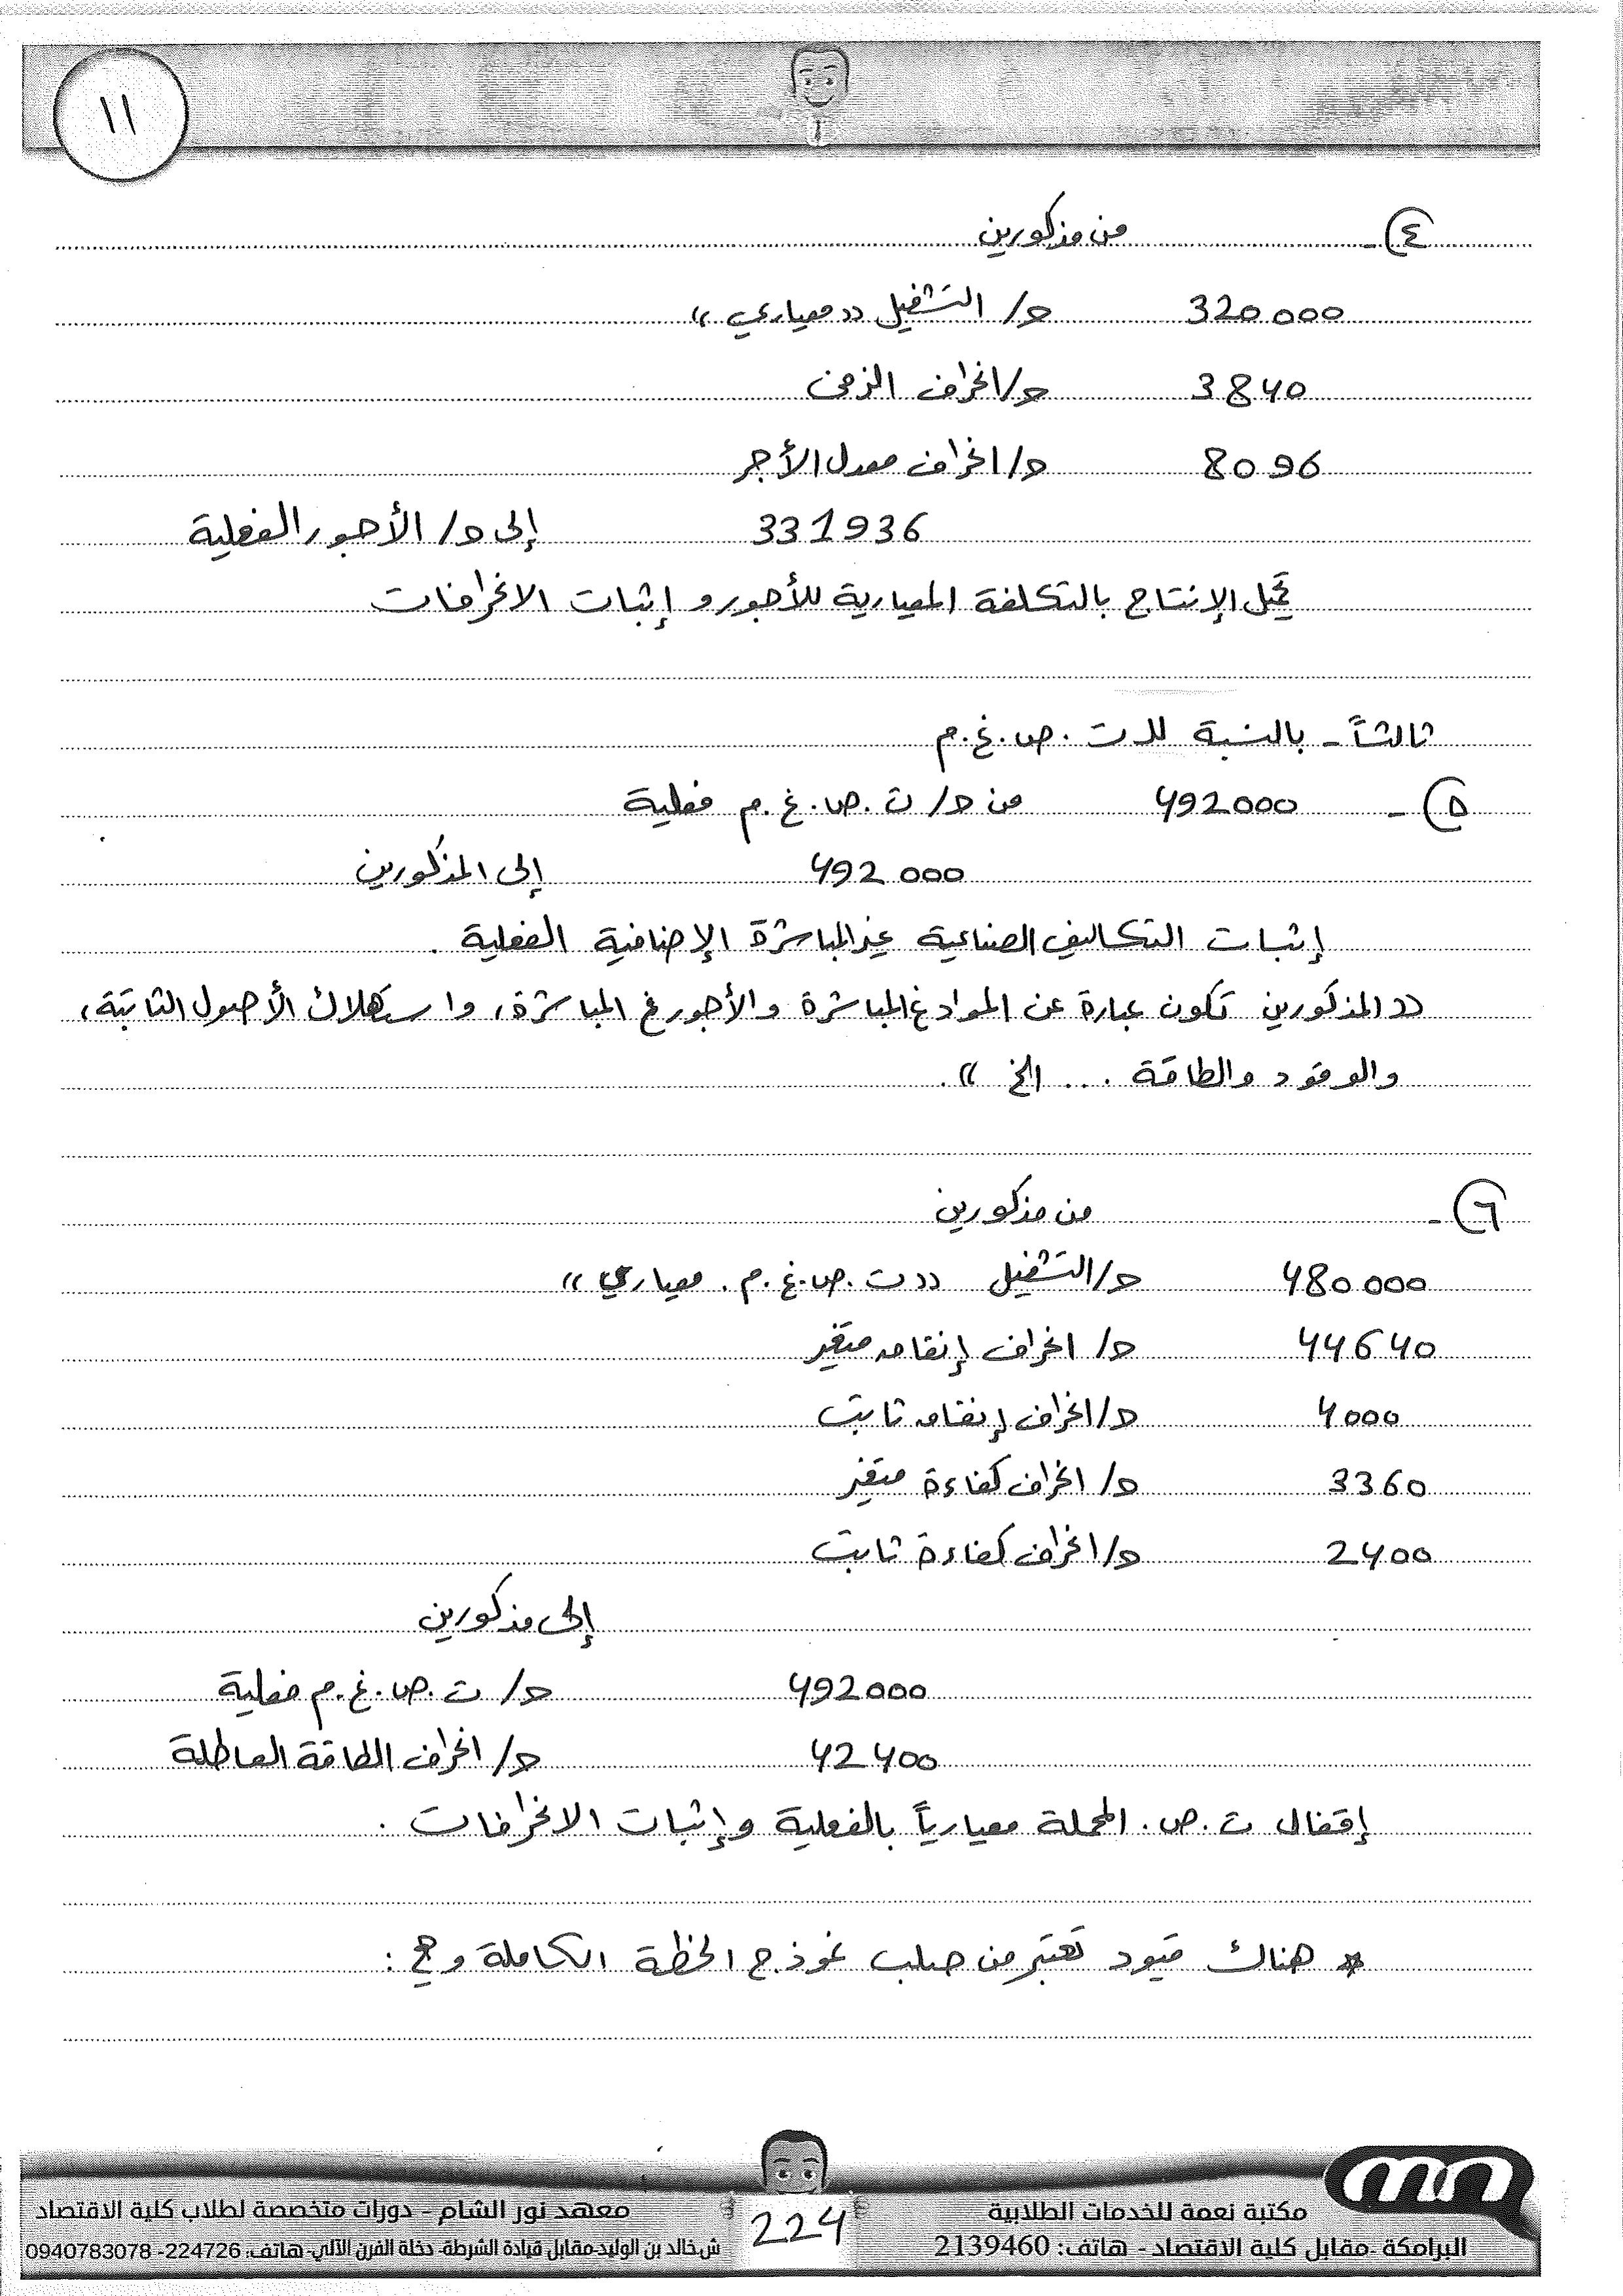 ١١
٤- من مذكورين
320000 ح/ التشغيل "معياري"
3840 ح/ انحراف الزمن
8096 ح/ انحراف معدل الأجر
331936 إلى ح/ الأجور الفعلية
تحميل الإنتاج بالتكلفة المعيارية للأجور و إثبات الانحرافات
ثالثاً - بالنسبة للـ ت.ص.غ.م
٥- 492000 من ح/ ت.ص.غ.م فعلية
492000 إلى المذكورين
إثبات التكاليف الصناعية غير المباشرة الإضافية الفعلية.
"المذكورين تكون عبارة عن المواد غ المباشرة والأجور غ المباشرة، واستهلاك الأصول الثابتة،
والوقود والطاقة ... الخ".
٦- من مذكورين
480000 ح/ التشغيل "ت.ص.غ.م. معياري"
44640 ح/ انحراف إنفاق متغير
4000 ح/ انحراف إنفاق ثابت
3360 ح/ انحراف كفاءة متغير
2400 ح/ انحراف كفاءة ثابت
إلى مذكورين
492000 ح/ ت.ص.غ.م فعلية
42400 ح/ انحراف الطاقة العاطلة
إقفال ت.ص. المحملة معيارياً بالفعلية وإثبات الانحرافات.
* هناك قيود تعتبر من صلب نموذج الخطة الكاملة وهي:
مكتبة نعمة للخدمات الطلابية
البرامكة -مقابل كلية الاقتصاد - هاتف: 2139460
224
معهد نور الشام - دورات متخصصة لطلاب كلية الاقتصاد
ش خالد بن الوليد-مقابل قيادة الشرطة- دخلة الفرن الآلي-هاتف: 224726- 0940783078